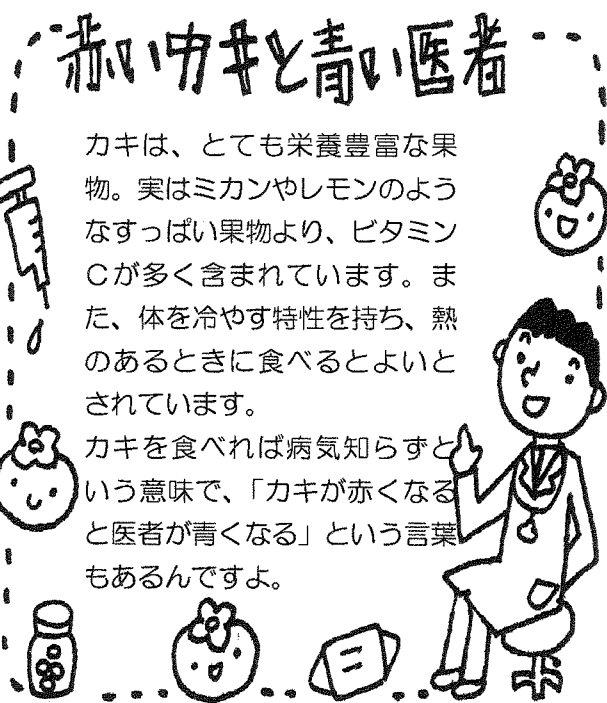 赤いカキと青い医者
カキは、とても栄養豊富な果
物。実はミカンやレモンのよう
なすっぱい果物より、ビタミン
Cが多く含まれています。ま
た、体を冷やす特性を持ち、熱
のあるときに食べるとよいと
されています。
カキを食べれば病気知らずと
いう意味で、「カキが赤くなる
と医者が青くなる」という言葉
もあるんですよ。